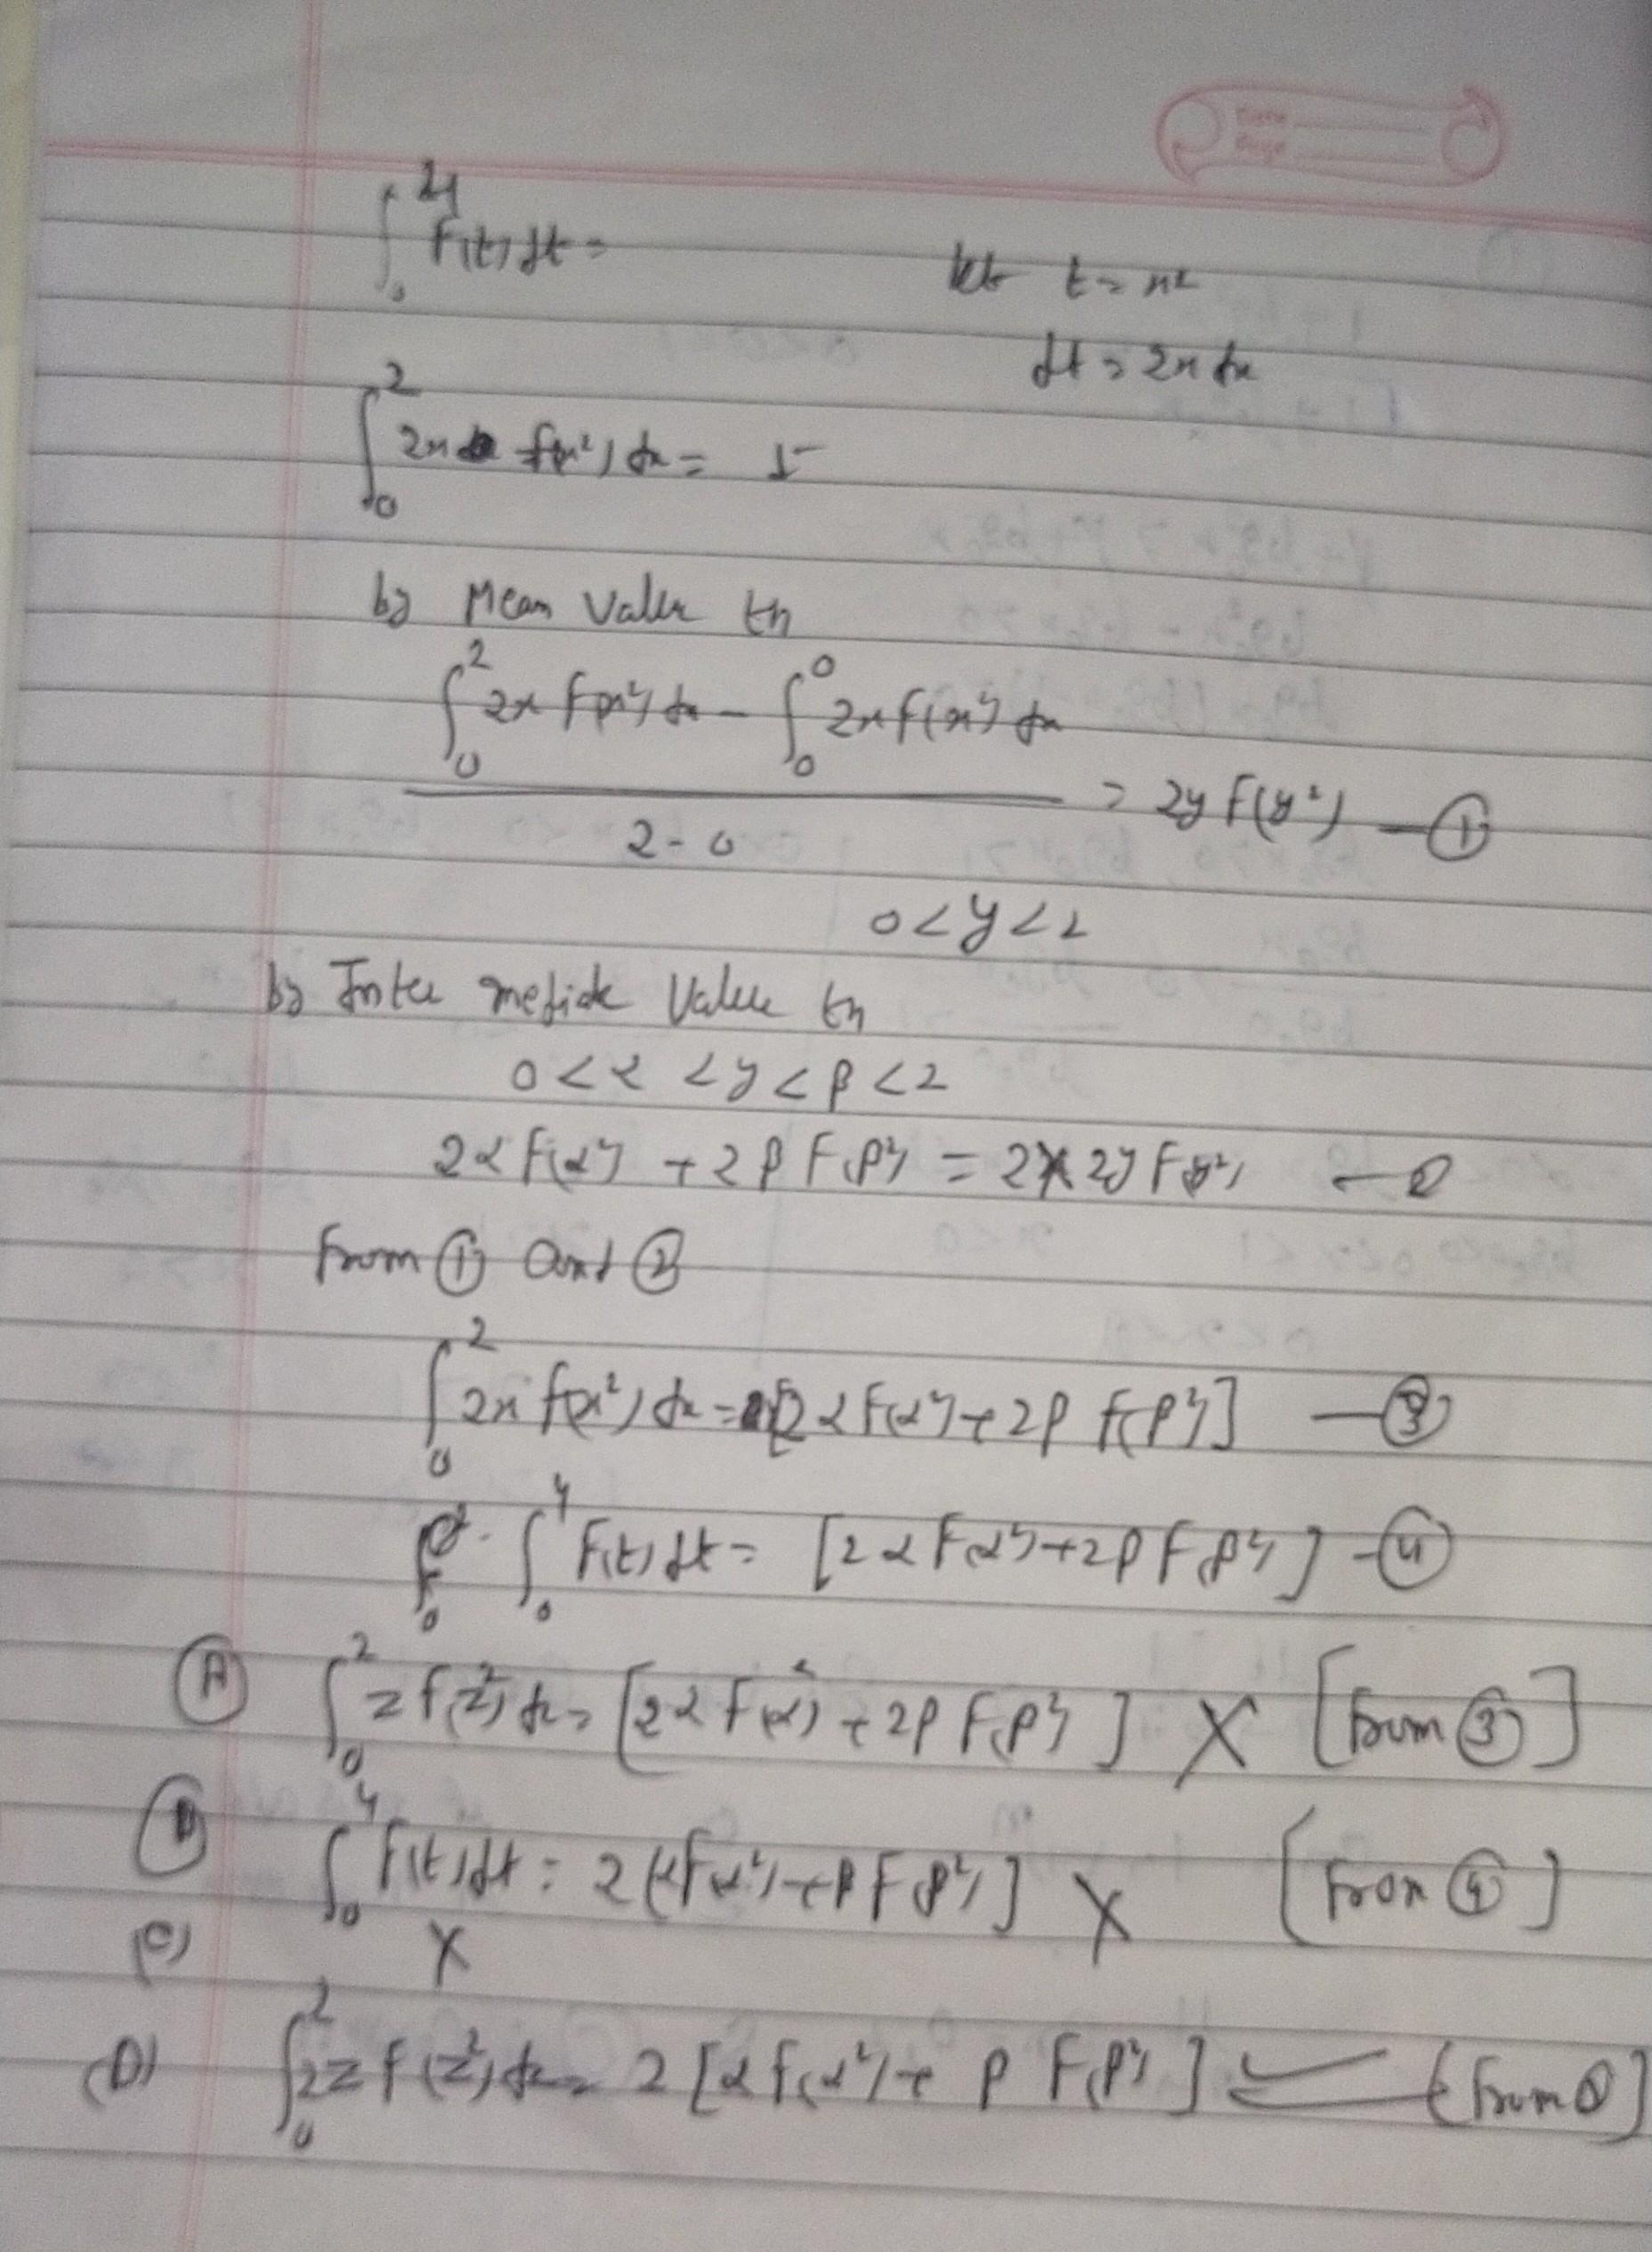 ∫₀⁴ F(t) dt =
let t = x²
dt = 2x dx
∫₀² 2x f(x²) dx = I
by Mean Value th
∫₀² 2x f(x²) dx - ∫₀⁰ 2x f(x²) dx
= 2y F(y²) — ①
2-0
0<y<2
by Inter mediate Value th
0<α<y<β<2
2α F(α²) + 2β F(β²) = 2×2y F(y²) — ②
From ① and ②
∫₀² 2x f(x²) dx = [2αF(α²)+2β f(β²)] — ③
∫₀⁴ F(t) dt = [2αF(α²)+2β F(β²)] — ④
Ⓐ ∫₀² z f(z²) dx = [2α F(α²) + 2β F(β²)] X [From ③]
∫₀⁴ F(t) dt = 2(αF(α²)+β F(β²)] X [From ④]
(C) X
(D) ∫₀² 2z f(z²) dx = 2 [α f(α²) + β F(β²)] [From ③]